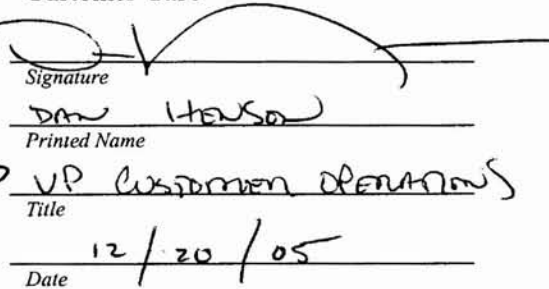 Signature
DAN HENSON
Printed Name
VP CUSTOMER OPERATIONS
Title
12/20/05
Date